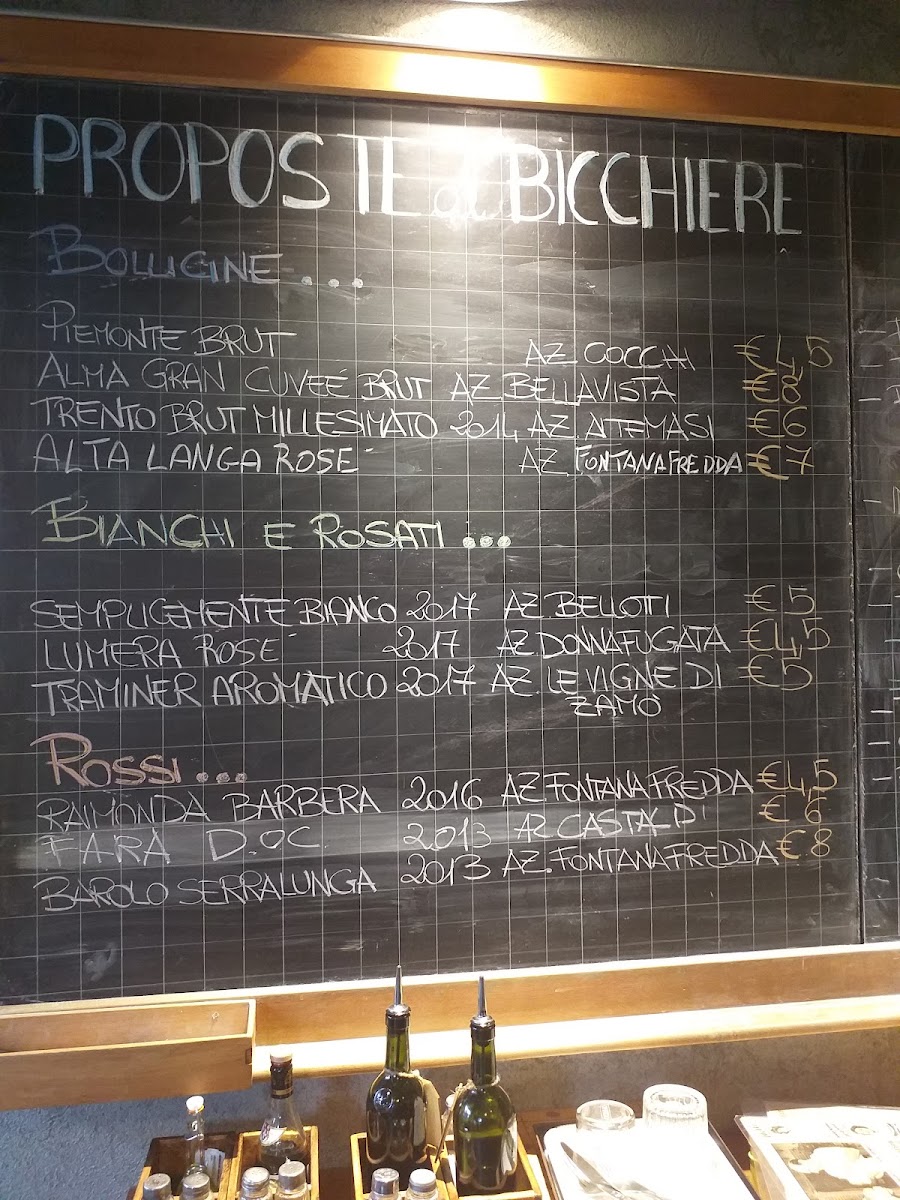 PROPOSTE al BICCHIERE
BOLLICINE ...
PIEMONTE BRUT AZ. COCCHI € 4,5
ALMA GRAN CUVEÉ BRUT AZ. BELLAVISTA € 8
TRENTO BRUT MILLESIMATO 2014 AZ. ATTEMASI € 6
ALTA LANGA ROSÉ AZ. FONTANAFREDDA € 7
BIANCHI E ROSATI ...
SEMPLICEMENTE BIANCO 2017 AZ. BELLOTTI € 5
LUMERA ROSÉ 2017 AZ. DONNAFUGATA € 4,5
TRAMINER AROMATICO 2017 AZ. LE VIGNE DI € 5
ZAMÒ
ROSSI ...
RAIMONDA BARBERA 2016 AZ. FONTANAFREDDA € 4,5
FARA D.OC 2013 AZ. CASTALDI € 6
BAROLO SERRALUNGA 2013 AZ. FONTANAFREDDA € 8